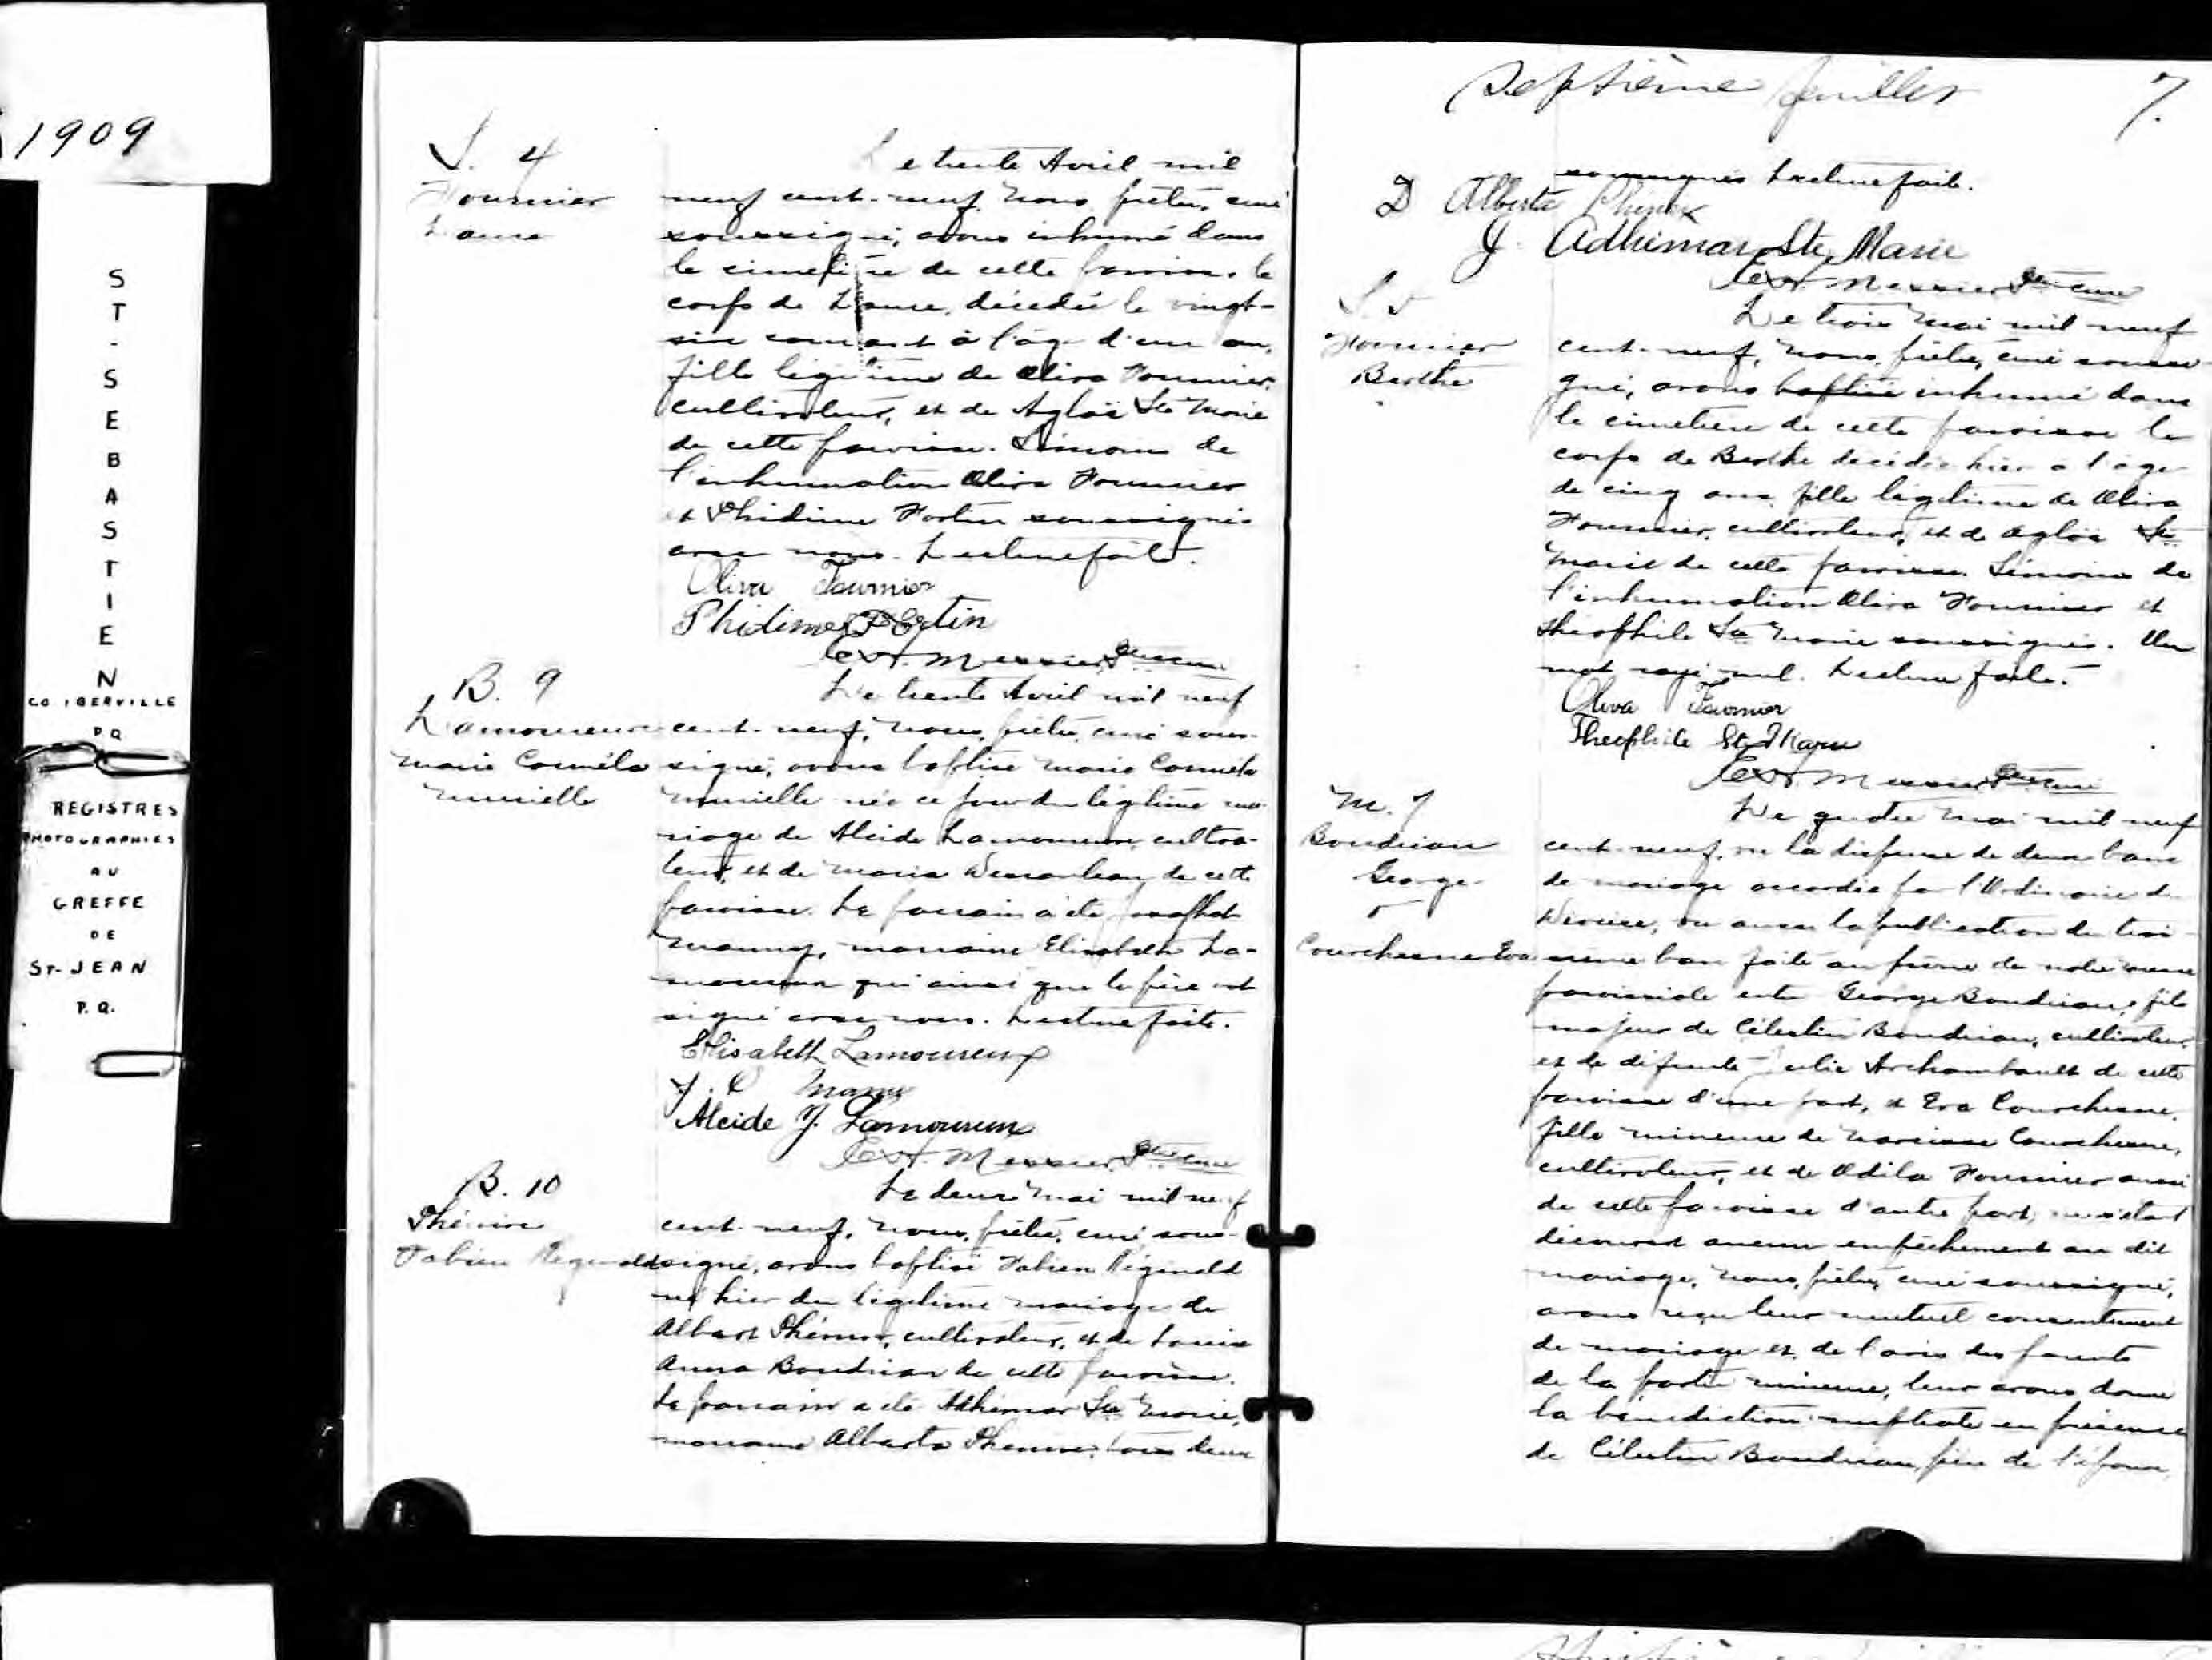 1909
ST-SEBASTIEN
CO IBERVILLE
P.Q
REGISTRES
PHOTOGRAPHIES
AU
GREFFE
DE
ST-JEAN
P.Q.
S. 4
Fournier
Laura
Le trente Avril mil
neuf cent-neuf, nous, prêtre, curé
soussigné, avons inhumé dans
le cimetière de cette paroisse, le
corps de Laura, décédée le vingt-
six courant à l'âge d'un an,
fille légitime de Oliva Fournier,
cultivateur, et de Aglaé Ste Marie
de cette paroisse. Témoins de
l'inhumation Oliva Fournier
et Phidime Fortin soussignés
avec nous. Lecture faite.
Oliva Fournier
Phidime Fortin
Messier Ptre curé
B. 9
Lamoureux
Marie Carméla
Murielle
Le trente Avril mil neuf
cent-neuf, nous, prêtre, curé sous-
signé, avons baptisé Marie Carméla
Murielle née ce jour du légitime ma-
riage de Alcide Lamoureux, cultiva-
teur, et de Maria de cette
paroisse. Le parrain a été Josaphat
marraine Elisabeth La-
moureux qui ainsi que le père ont
signé avec nous. Lecture faite.
Elisabeth Lamoureux
J. O
Alcide J. Lamoureux
Messier Ptre curé
B. 10
Phénix
Fabien Reginald
Le deux Mai mil neuf
cent-neuf, nous, prêtre, curé sous-
signé, avons baptisé Fabien Réginald
né hier du légitime mariage de
Albert Phénix, cultivateur, et de Louisa
Anna Boudriau de cette paroisse.
Le parrain a été Adhémar Ste Marie,
marraine Alberta Phénix, tous deux
Septième feuillet
7.
soussignés Lecture faite.
D Alberta Phénix
J. Adhémar Ste Marie
Messier Ptre curé
S 5
Fournier
Berthe
Le trois Mai mil neuf
cent-neuf, nous, prêtre, curé soussi-
gné, avons baptisé inhumé dans
le cimetière de cette paroisse le
corps de Berthe décédée hier à l'âge
de cinq ans, fille légitime de Oliva
Fournier, cultivateur, et de Aglaé Ste
Marie de cette paroisse. Témoins de
l'inhumation Oliva Fournier et
Théophile Ste Marie soussignés. Un
mot rayé nul. Lecture faite.
Oliva Fournier
Theophile Ste Marie
Messier Ptre curé
M. 7
Boudriau
George
Courchesne Eva
Le quatre Mai mil neuf
cent-neuf, vu la dispense de deux bans
de mariage accordée par l'Ordinaire du
Diocèse, vu aussi la publication du troi-
sième ban faite au prône de notre messe
paroissiale entre George Boudriau, fils
majeur de Célestin Boudriau, cultivateur,
et de défunte Julie Archambault de cette
paroisse d'une part, et Eva Courchesne,
fille mineure de Narcisse Courchesne,
cultivateur, et de Odila Fournier aussi
de cette paroisse d'autre part, ne s'étant
découvert aucun empêchement au dit
mariage, nous, prêtre, curé soussigné,
avons reçu leur mutuel consentement
de mariage et, de l'avis des parents
de la partie mineure, leur avons donné
la bénédiction nuptiale en présence
de Célestin Boudriau, père de l'époux,